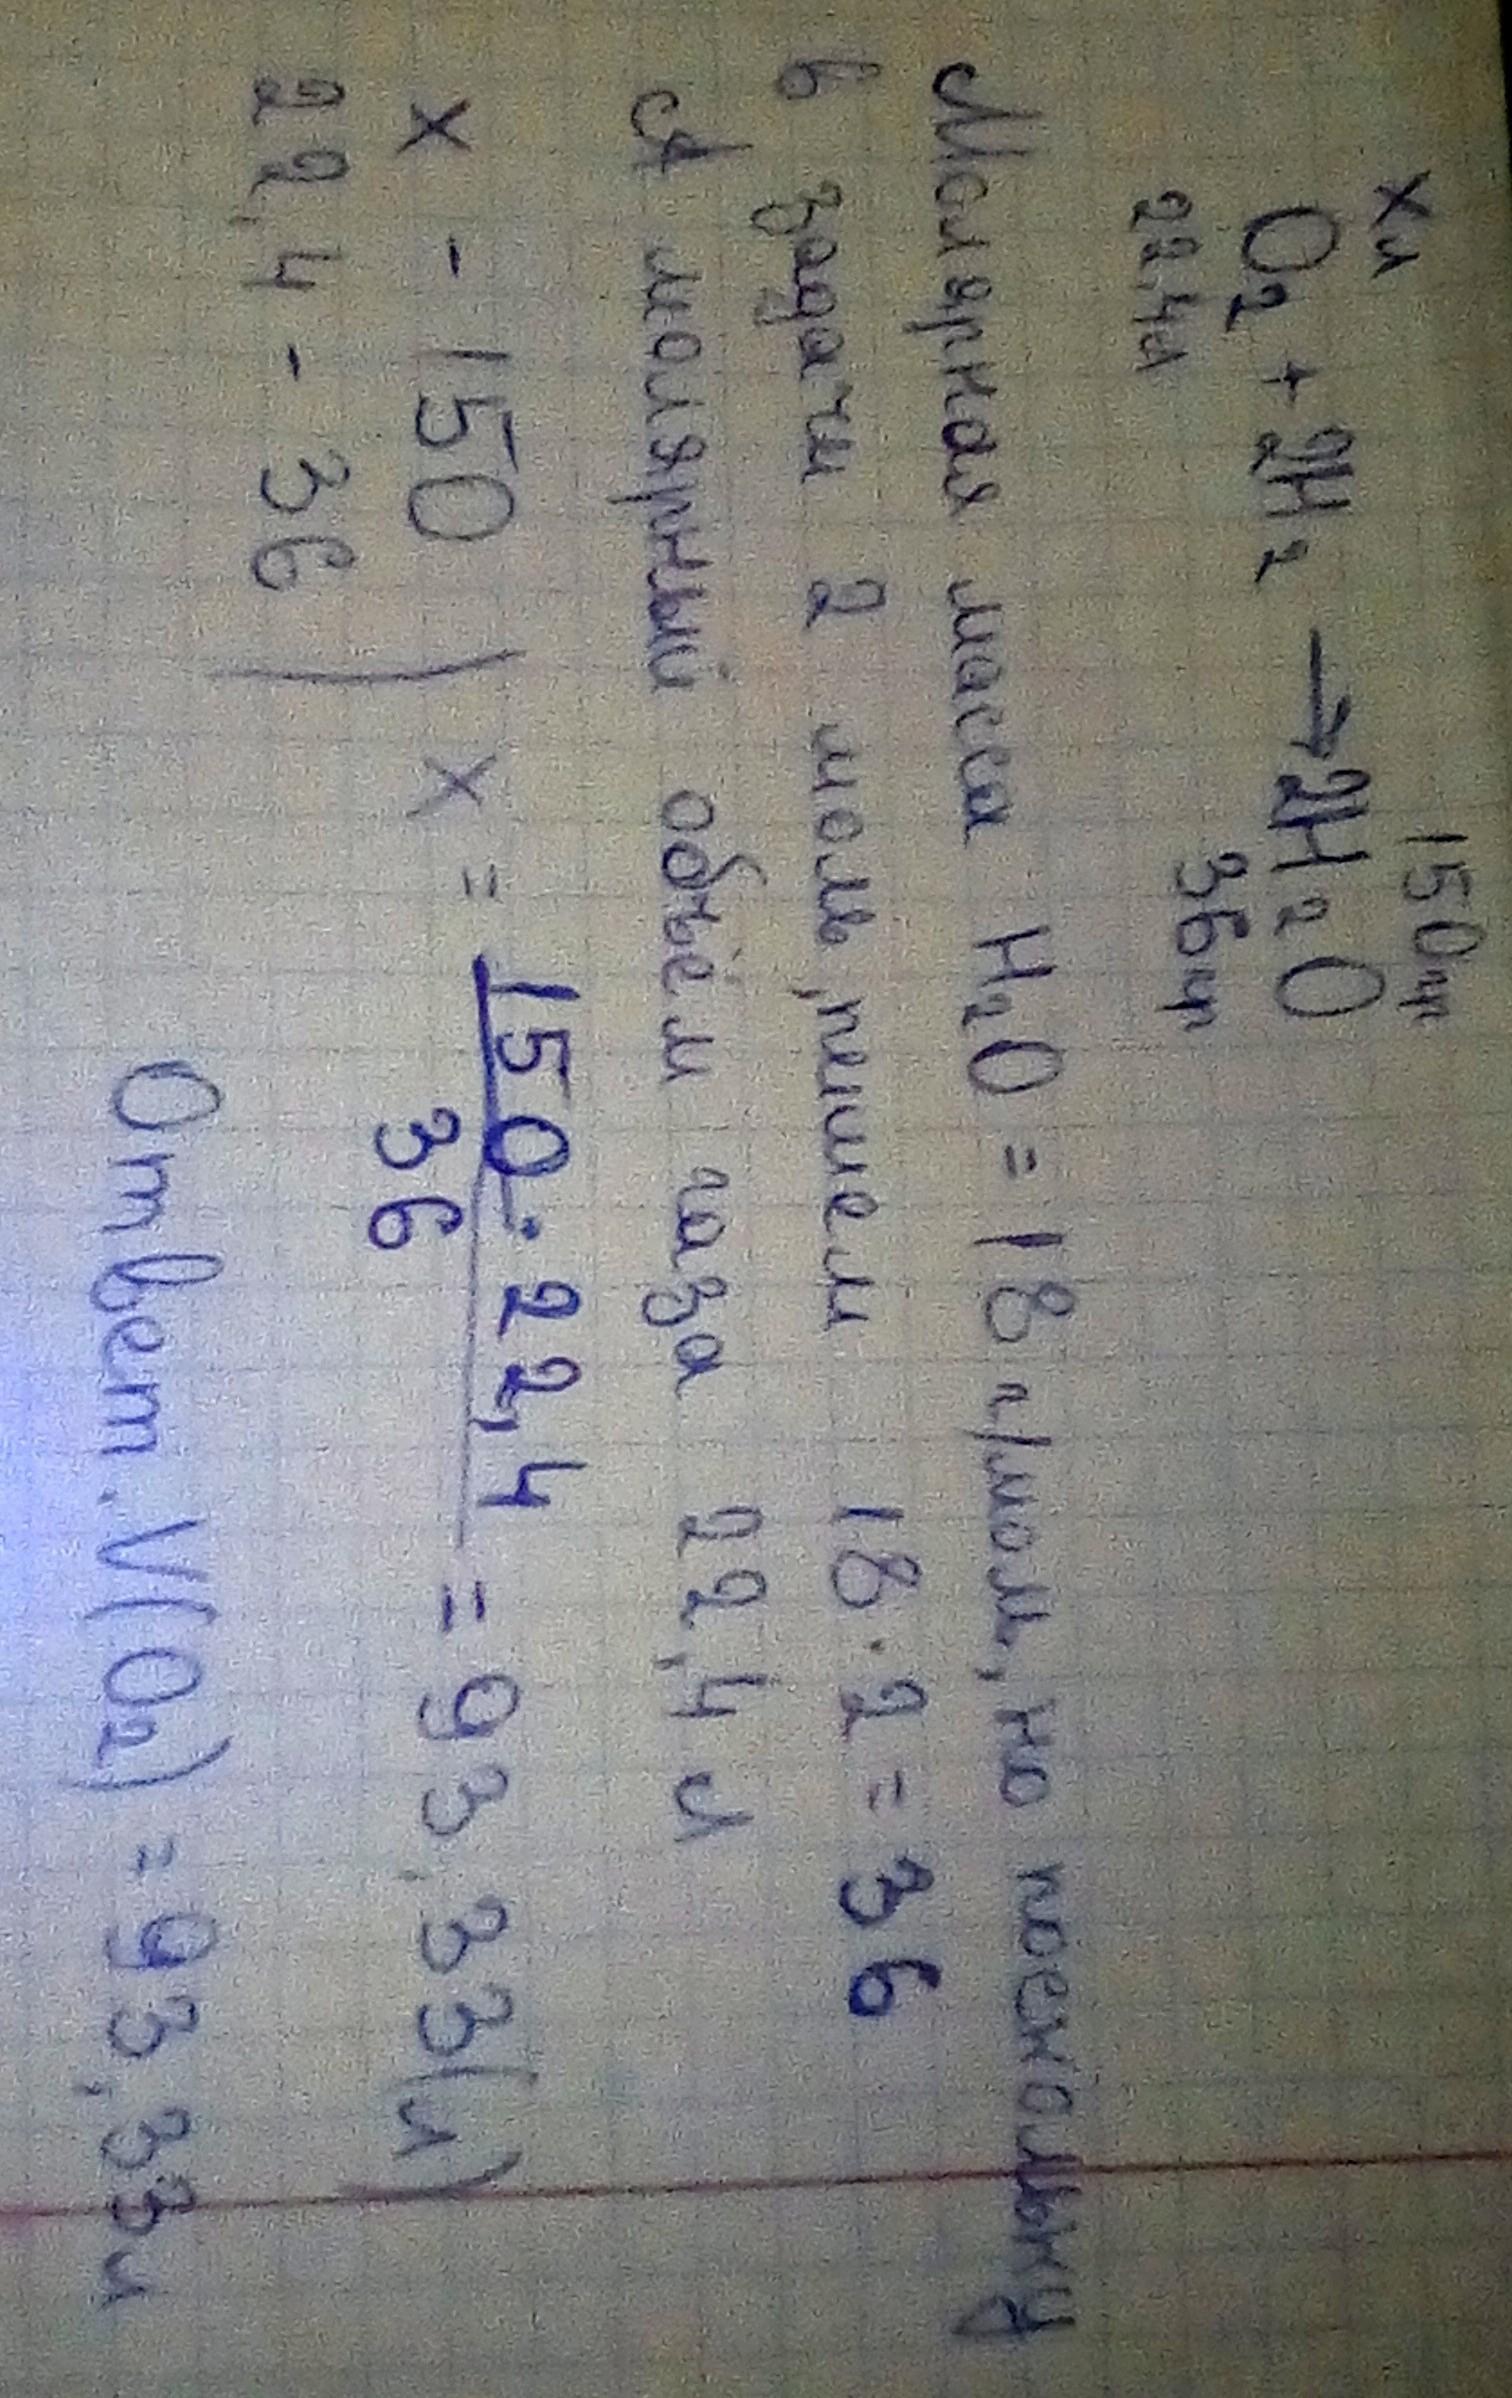 xл 150гр
O₂ + 2H₂ → 2H₂O
22,4л 2 36гр
Молярная масса H₂O = 18 г/моль, но поскольку
в задачи 2 моль, пишем 18·2 = 36
А молярный объём газа 22,4 л
x - 150
22,4 - 36 ) x = 150·22,4 / 36 = 93,33(л)
Ответ. V(O₂) = 93,33л